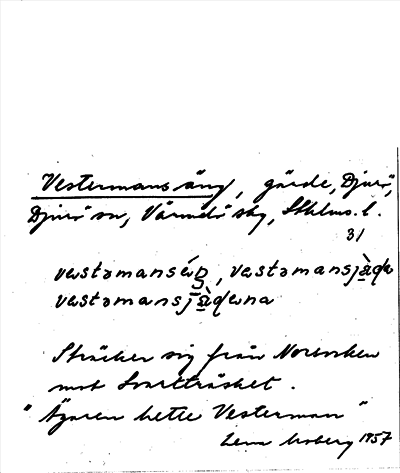 Vestermans äng, gärde, Djurö,
Djurö sn, Värmdö skg, Sthlms l.
31
vɛstəmansɛ́ŋ, vɛstəmansjæ̀ḍə
vɛstəmansjæ̀ḍəna
Sträcker sig från Norrviken
mot Svartträsket.
"Ägaren hette Vesterman"
Lena Moberg 1957